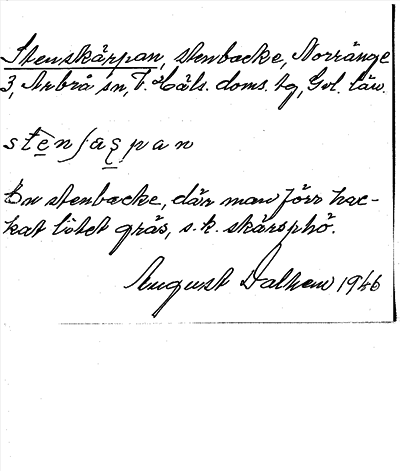 Stenskärpan, stenbacke, Norränge
3, Arbrå sn, V. Häls. doms. tg, Gvl. län.
stenʃaʂpan
En stenbacke, där man förr hac-
kat litet gräs, s.k. skärsphö.
August Dalhem 1946